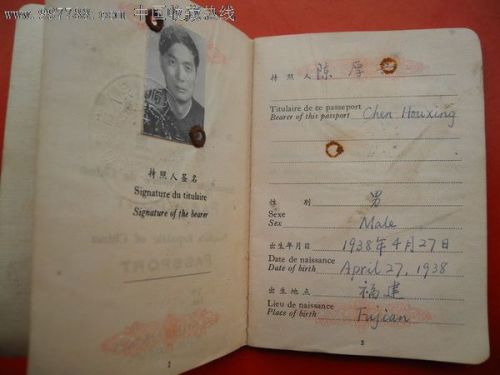 www.997788.com 中国收藏热线
持照人签名
Signature du titulaire
Signature of the bearer
PASSPORT
2
持照人 陈 厚
Titulaire de ce passeport
Bearer of this passport Chen Houxing
性 别 男
Sexe
Sex Male
出生年月日 1938年4月27日
Date de naissance
Date of birth April 27, 1938
出生地点 福建
Lieu de naissance
Place of birth Fujian
3